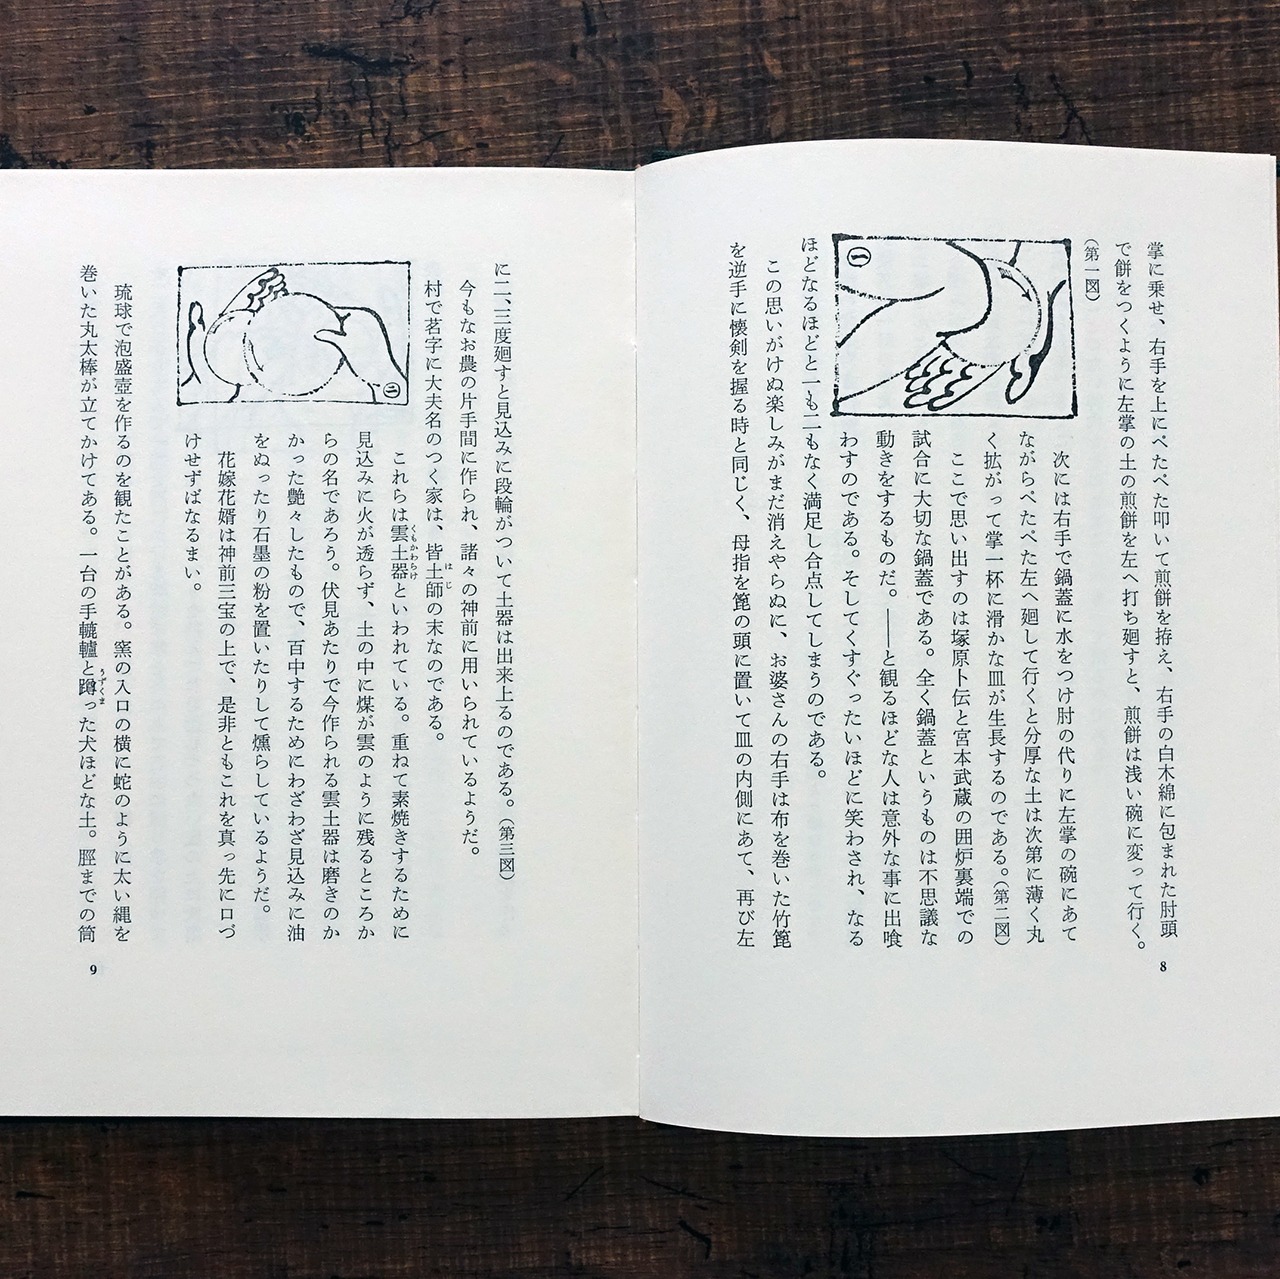 掌に乗せ、右手を上にぺたぺた叩いて煎餅を拵え、右手の白木綿に包まれた肘頭
で餅をつくように左掌の土の煎餅を左へ打ち廻すと、煎餅は浅い碗に変って行く。
（第一図）
一
次には右手で鍋蓋に水をつけ肘の代りに左掌の碗にあて
ながらぺたぺた左へ廻して行くと分厚な土は次第に薄く丸
く拡がって掌一杯に滑かな皿が生長するのである。（第二図）
ここで思い出すのは塚原卜伝と宮本武蔵の囲炉裏端での
試合に大切な鍋蓋である。全く鍋蓋というものは不思議な
動きをするものだ。――と観るほどな人は意外な事に出喰
わすのである。そしてくすぐったいほどに笑わされ、なる
ほどなるほどと一も二もなく満足し合点してしまうのである。
この思いがけぬ楽しみがまだ消えやらぬに、お婆さんの右手は布を巻いた竹篦
を逆手に懐剣を握る時と同じく、母指を篦の頭に置いて皿の内側にあて、再び左
8
に二、三度廻すと見込みに段輪がついて土器は出来上るのである。（第三図）
今もなお農の片手間に作られ、諸々の神前に用いられているようだ。
村で茗字に大夫名のつく家は、皆土師の末なのである。
はじ
二
これらは雲土器といわれている。重ねて素焼きするために
くもかわらけ
見込みに火が透らず、土の中に煤が雲のように残るところか
らの名であろう。伏見あたりで今作られる雲土器は磨きのか
かった艶々したもので、百中するためにわざわざ見込みに油
をぬったり石墨の粉を置いたりして燻らしているようだ。
花嫁花婿は神前三宝の上で、是非ともこれを真っ先に口づ
けせずばなるまい。
琉球で泡盛壺を作るのを観たことがある。窯の入口の横に蛇のように太い縄を
巻いた丸太棒が立てかけてある。一台の手轆轤と蹲った犬ほどな土。脛までの筒
うずくま
9